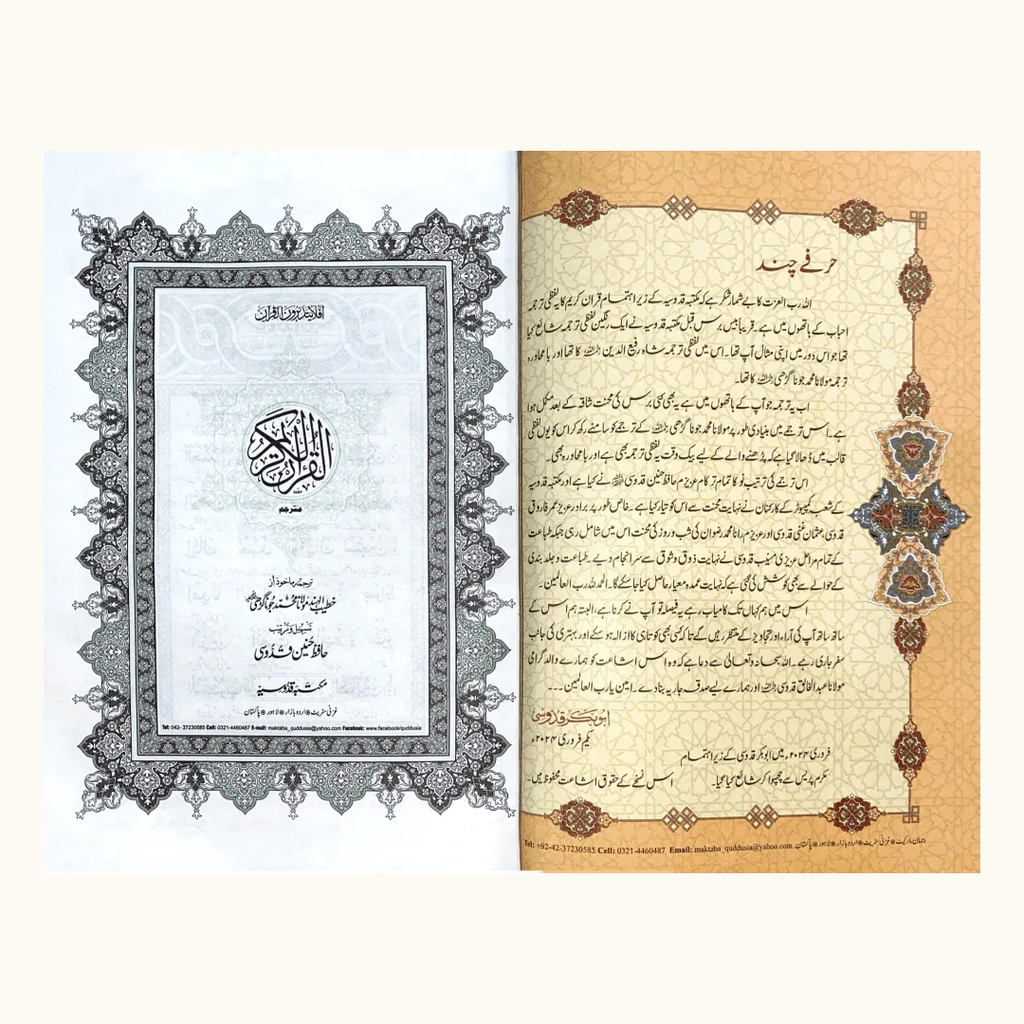 افلا يتدبرون القرآن
القرآن الكريم
مترجم
ترجمہ ماخوذ از
خطیب الہند مولانا محمد جوناگڑھی رحمہ اللہ
تسہیل و ترتیب
حافظ حنین قدوسی
مکتبہ قدوسیہ
غزنی سٹریٹ ◉ اردو بازار ◉ لاہور ◉ پاکستان
Tel: 042- 37230585 Cell: 0321-4460487 E-mail: maktaba_quddusia@yahoo.com Facebook: www.facebook/quddusia
حرفے چند
اللہ رب العزت کا بے شمار شکر ہے کہ مکتبہ قدوسیہ کے زیر اہتمام قرآن کریم کا یہ لفظی ترجمہ
احباب کے ہاتھوں میں ہے۔ قریباً بیس برس قبل مکتبہ قدوسیہ نے ایک رنگین لفظی ترجمہ شائع کیا
تھا جو اس دور میں اپنی مثال آپ تھا۔ اس میں لفظی ترجمہ شاہ رفیع الدین رحمہ اللہ کا تھا اور بامحاورہ
ترجمہ مولانا محمد جوناگڑھی رحمہ اللہ کا تھا۔
اب یہ ترجمہ جو آپ کے ہاتھوں میں ہے یہ بھی کئی برس کی محنت شاقہ کے بعد مکمل ہوا
ہے۔ اس ترجمے میں بنیادی طور پر مولانا محمد جوناگڑھی رحمہ اللہ کے ترجمے کو سامنے رکھ کر اس کو یوں لفظی
قالب میں ڈھالا گیا ہے کہ پڑھنے والے کے لیے بیک وقت یہ لفظی ترجمہ بھی ہے اور بامحاورہ بھی۔
اس ترجمے کی ترتیب نو کا تمام تر کام عزیزم حافظ حنین قدوسی حفظہ اللہ نے کیا ہے اور مکتبہ قدوسیہ
کے شعبہ کمپیوٹر کے کارکنان نے نہایت محنت سے اس کو تیار کیا ہے۔ خاص طور پر برادر عزیز عمر فاروق
قدوسی، عثمان غنی قدوسی اور عزیزم رانا محمد رضوان کی شب و روز کی محنت اس میں شامل رہی جبکہ طباعت
کے تمام مراحل عزیزی منیب قدوسی نے نہایت ذوق و شوق سے سرانجام دیے۔ طباعت و جلد بندی
کے حوالے سے بھی کوشش کی گئی ہے کہ نہایت عمدہ معیار حاصل کیا جا سکے گا۔ الحمد للہ رب العالمین۔
اس میں ہم کہاں تک کامیاب رہے یہ فیصلہ تو آپ نے کرنا ہے، البتہ ہم اس کے
ساتھ ساتھ آپ کی آراء اور تجاویز کے منتظر رہیں گے تاکہ کسی بھی کوتاہی کا ازالہ ہو سکے اور بہتری کی جانب
سفر جاری رہے۔ اللہ سبحانہ وتعالیٰ سے دعا ہے کہ وہ اس اشاعت کو ہمارے والد گرامی
مولانا عبدالخالق قدوسی رحمہ اللہ اور ہمارے لیے صدقہ جاریہ بنا دے۔ امین یا رب العالمین۔۔۔
ابوبکر قدوسی
یکم فروری ۲۰۲۴ء
فروری ۲۰۲۴ء میں ابوبکر قدوسی کے زیر اہتمام
مکرم پریس سے چھپوا کر شائع کیا گیا۔ اس نسخے کے حقوق اشاعت محفوظ ہیں۔
رحمان مارکیٹ ◉ غزنی سٹریٹ ◉ اردو بازار ◉ لاہور ◉ پاکستان Tel: +92-42-37230585 Cell: 0321-4460487 Email: maktaba_quddusia@yahoo.com